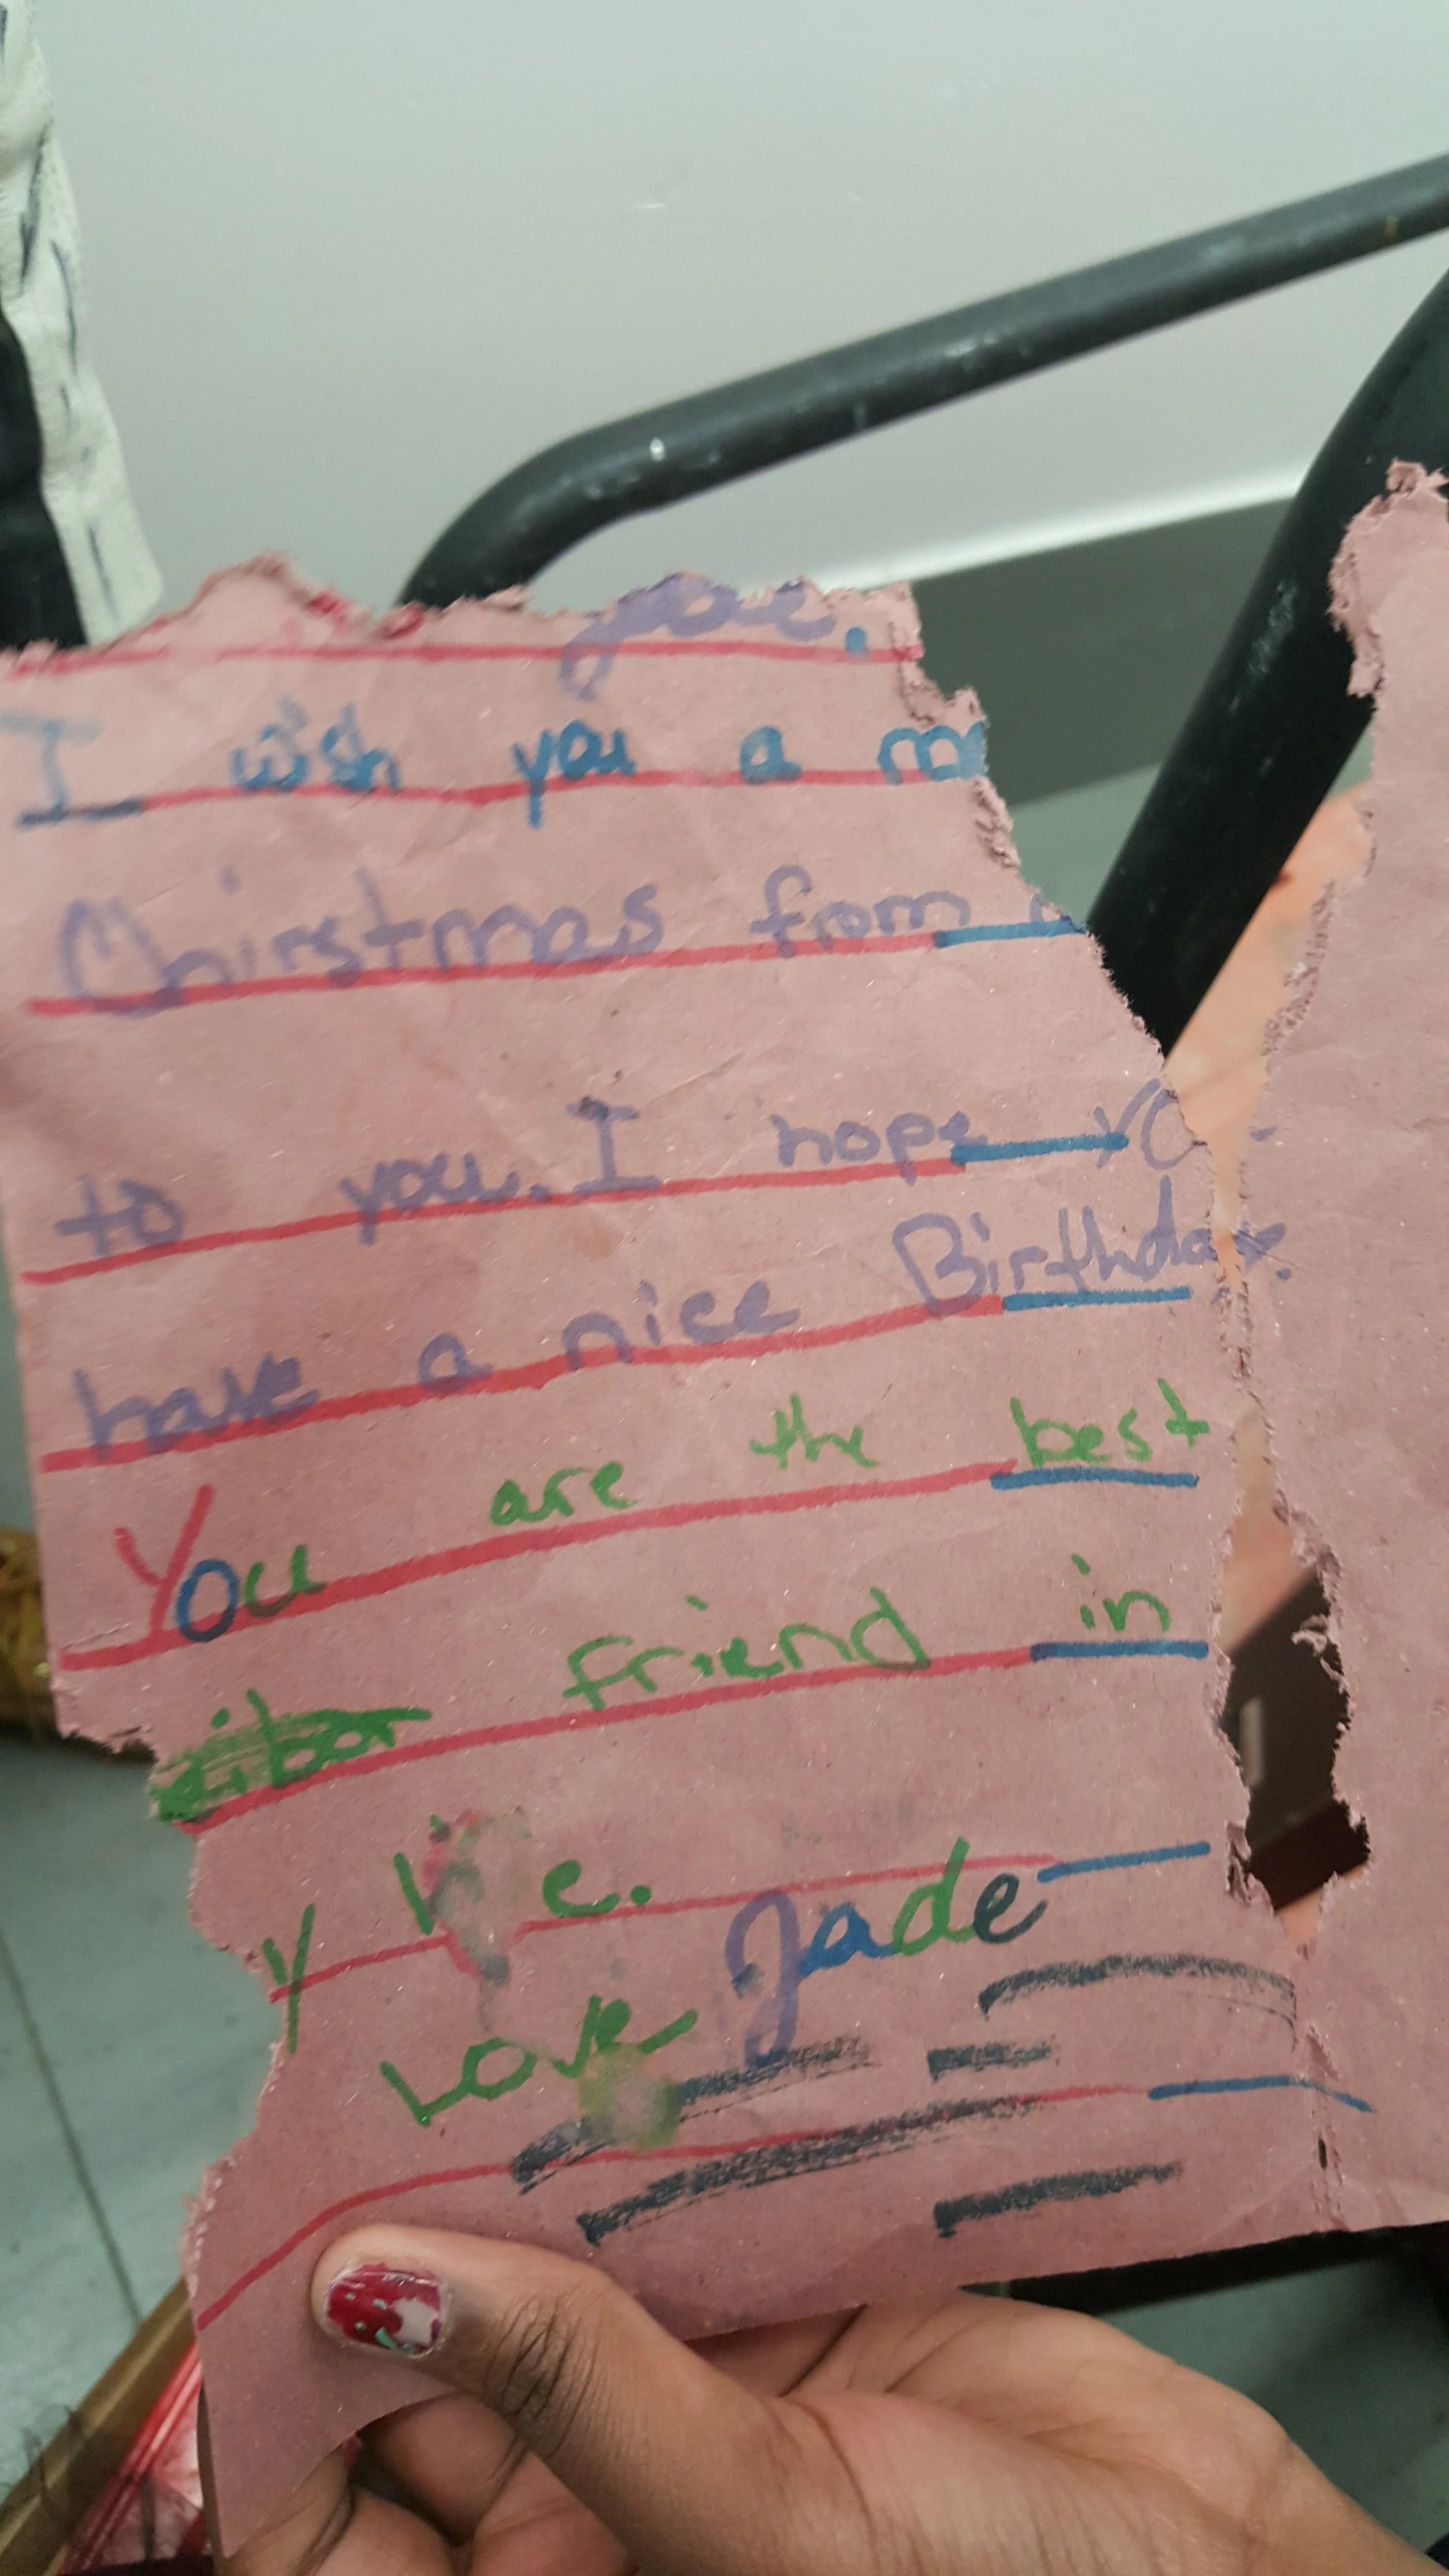 I wish you a
Chirstmas from
to you. I hope yo
have a nice Birthday.
You are the best
friend in
Love Jade